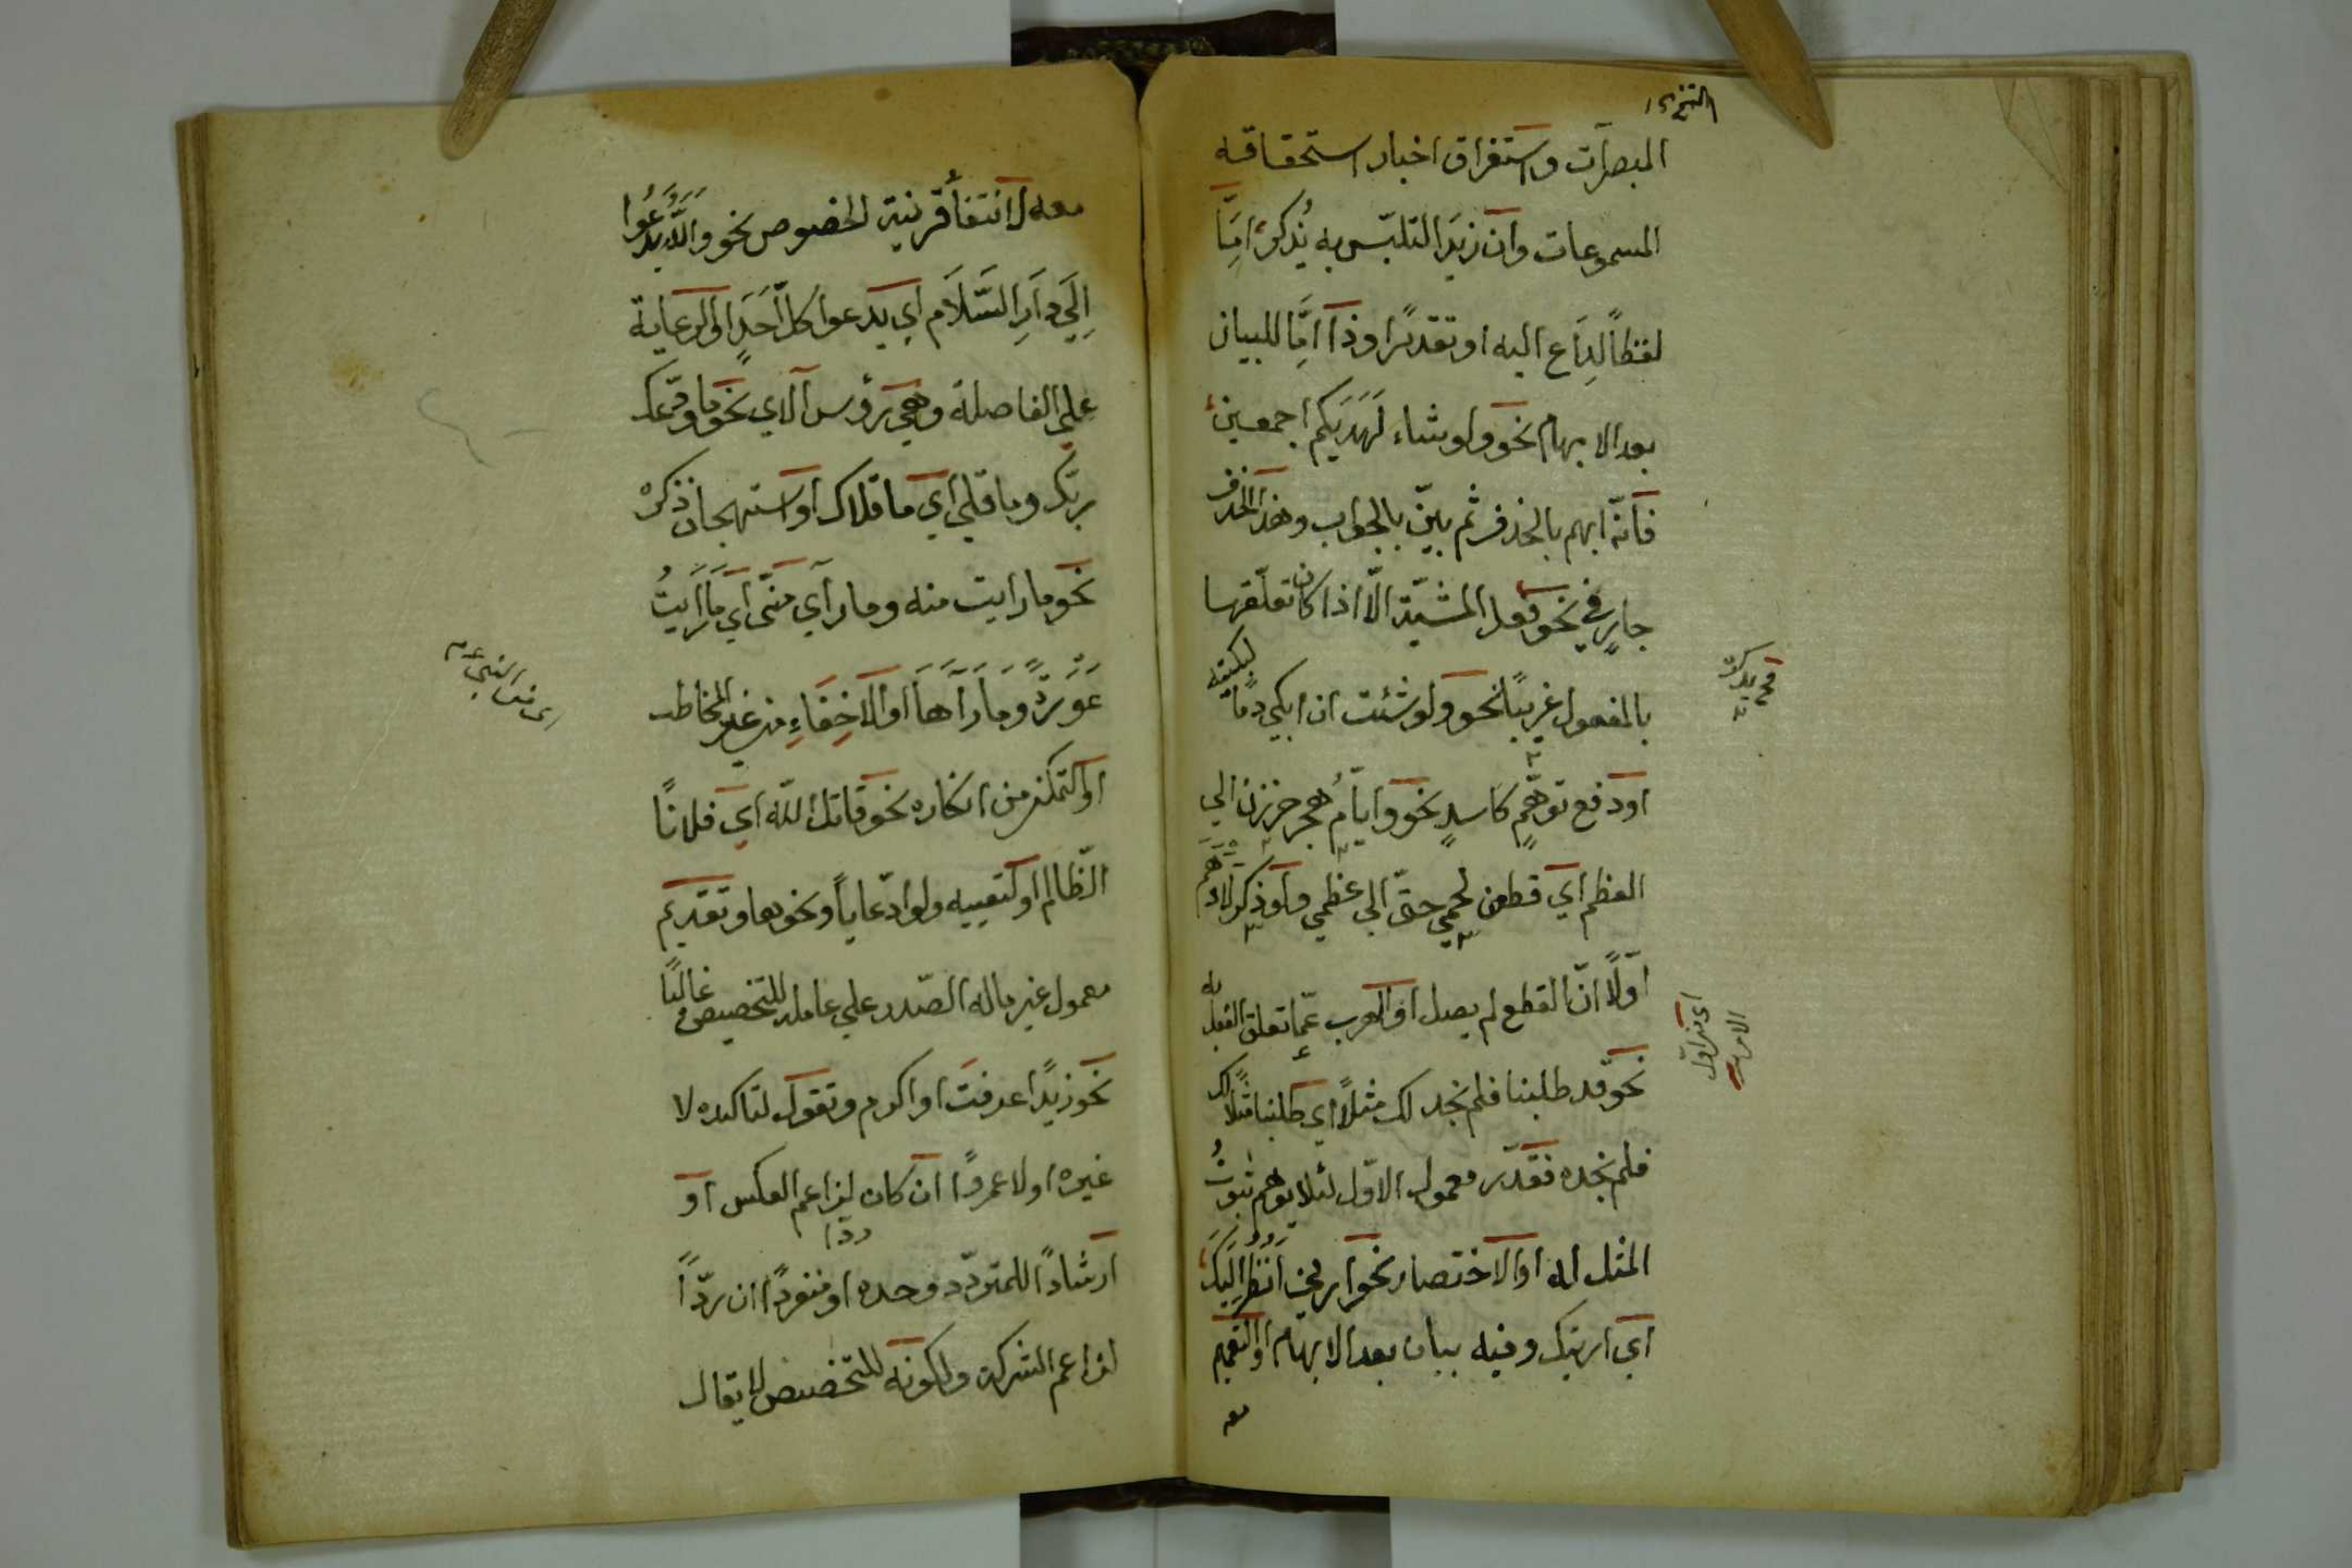 المبصرات واستغراق اخبار استحقاقه
المسموعات وان زيد التلبّس به يُذكر امّا
لفظاً لِدَاعٍ اليه او تقديرًا وذا امّا للبيان
بعد الابهام نحو ولو شاء لَهَدَيكم اجمعين
فانّه ابهم بالحذف ثم بيّن بالجواب وهذا الحذف
جارٍ في نحو فعل المشيّة الّا اذا كان تعلّقها
بالمفعول غريبًا نحو ولو شئت ان ابكي دمًا لبكيته
او دفع توهّمٍ كاسدٍ نحو وايّامُ هجر حززن الي
العظم اي قطعن لحمي حتّى الي عظمي ولو ذكر لَتُوُهِّمَ
اوّلًا انّ القطع لم يصل او الهرب عمّا تعلق الفعل به
نحو قد طلبنا فلم نجد لك مثلًا اي طلبنا مثلًا لك
فلم نجده فقدّر معمول الاوّل لئلا يوهم ثبوتُ
المثل له او الاختصار نحو ارني اَنْظُرْ اِلَيْكَ
اي ارنيك وفيه بيان بعد الابهام او التعميم
معه
معه لانتفأ قرينية الخصوص نحو واللّه يَدْعُوا
اِلَي دَارِ السَّلَام اي يدعوا كلّ اَحَدٍ او الرعاية
علي الفاصلة وهي رؤس الآي نحو ما ودّعك
ربّك وما قلي اي ما قلاك او استهجان ذكره
نحو ما رايت منه وما رآي منّي اي مَا رَاَيْتُ
عَوْرَةً وَمَا رَآهَا او الاخِفَاءِ من غير المخاطب
او التمكن من انكاره نحو قاتل اللّه اي فلانًا
الظّالم او كتعيينه ولو ادّعاياً ونحوها وتقديم
معمول غير ماله الصّدر علي عامله للتخصيص غالبًا
نحو زيدًا عرفتَ او اكرم وتقول لتاكيده لا
غيره او لا عمروًا ان كان لزاعم العكس او
ردًا
ارشادًا للمتردّد وحده او منفردًا ان ردّاً
لزاعم الشركة ولكونه للتخصيص لا يقال